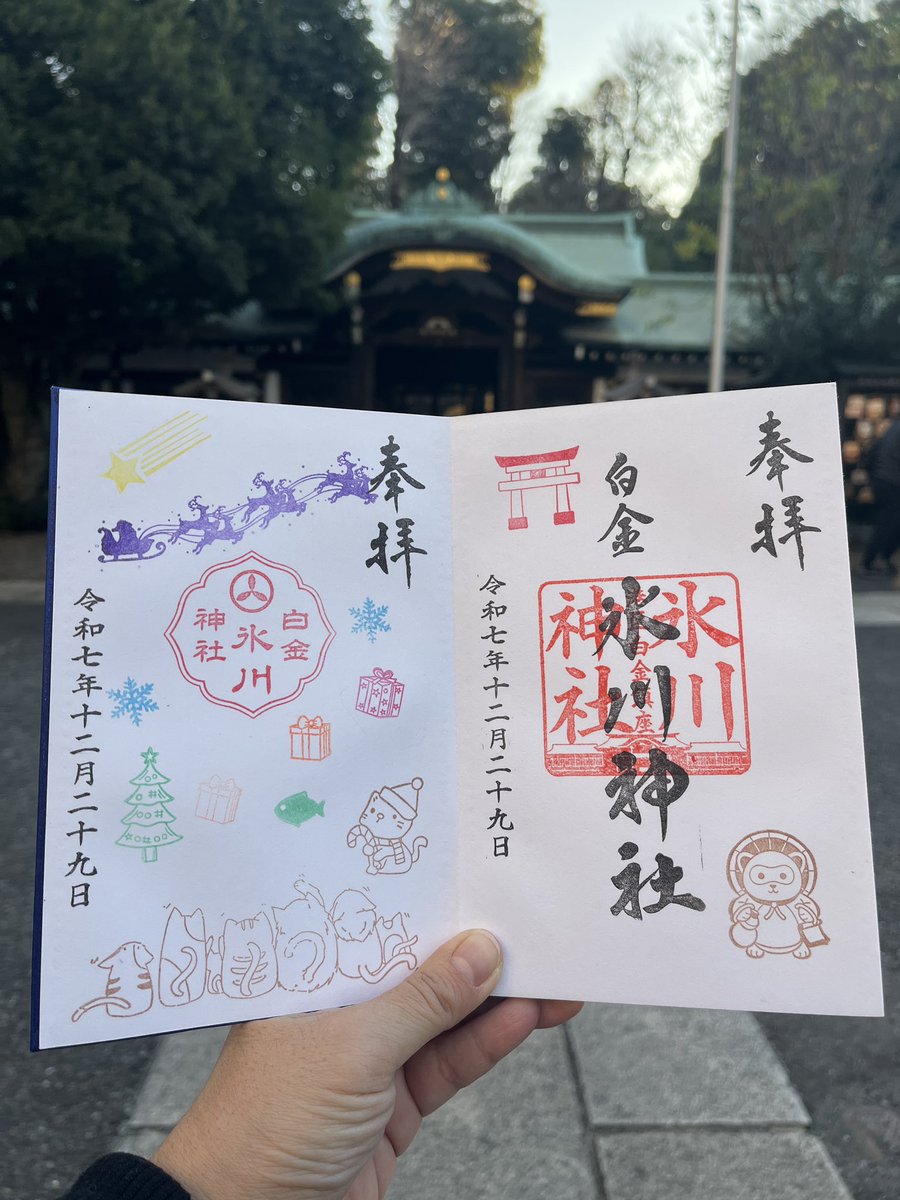 奉拝
白金
氷川神社
氷川
白金鎮座
神社
令和七年十二月二十九日
奉拝
白金
氷川
神社
令和七年十二月二十九日